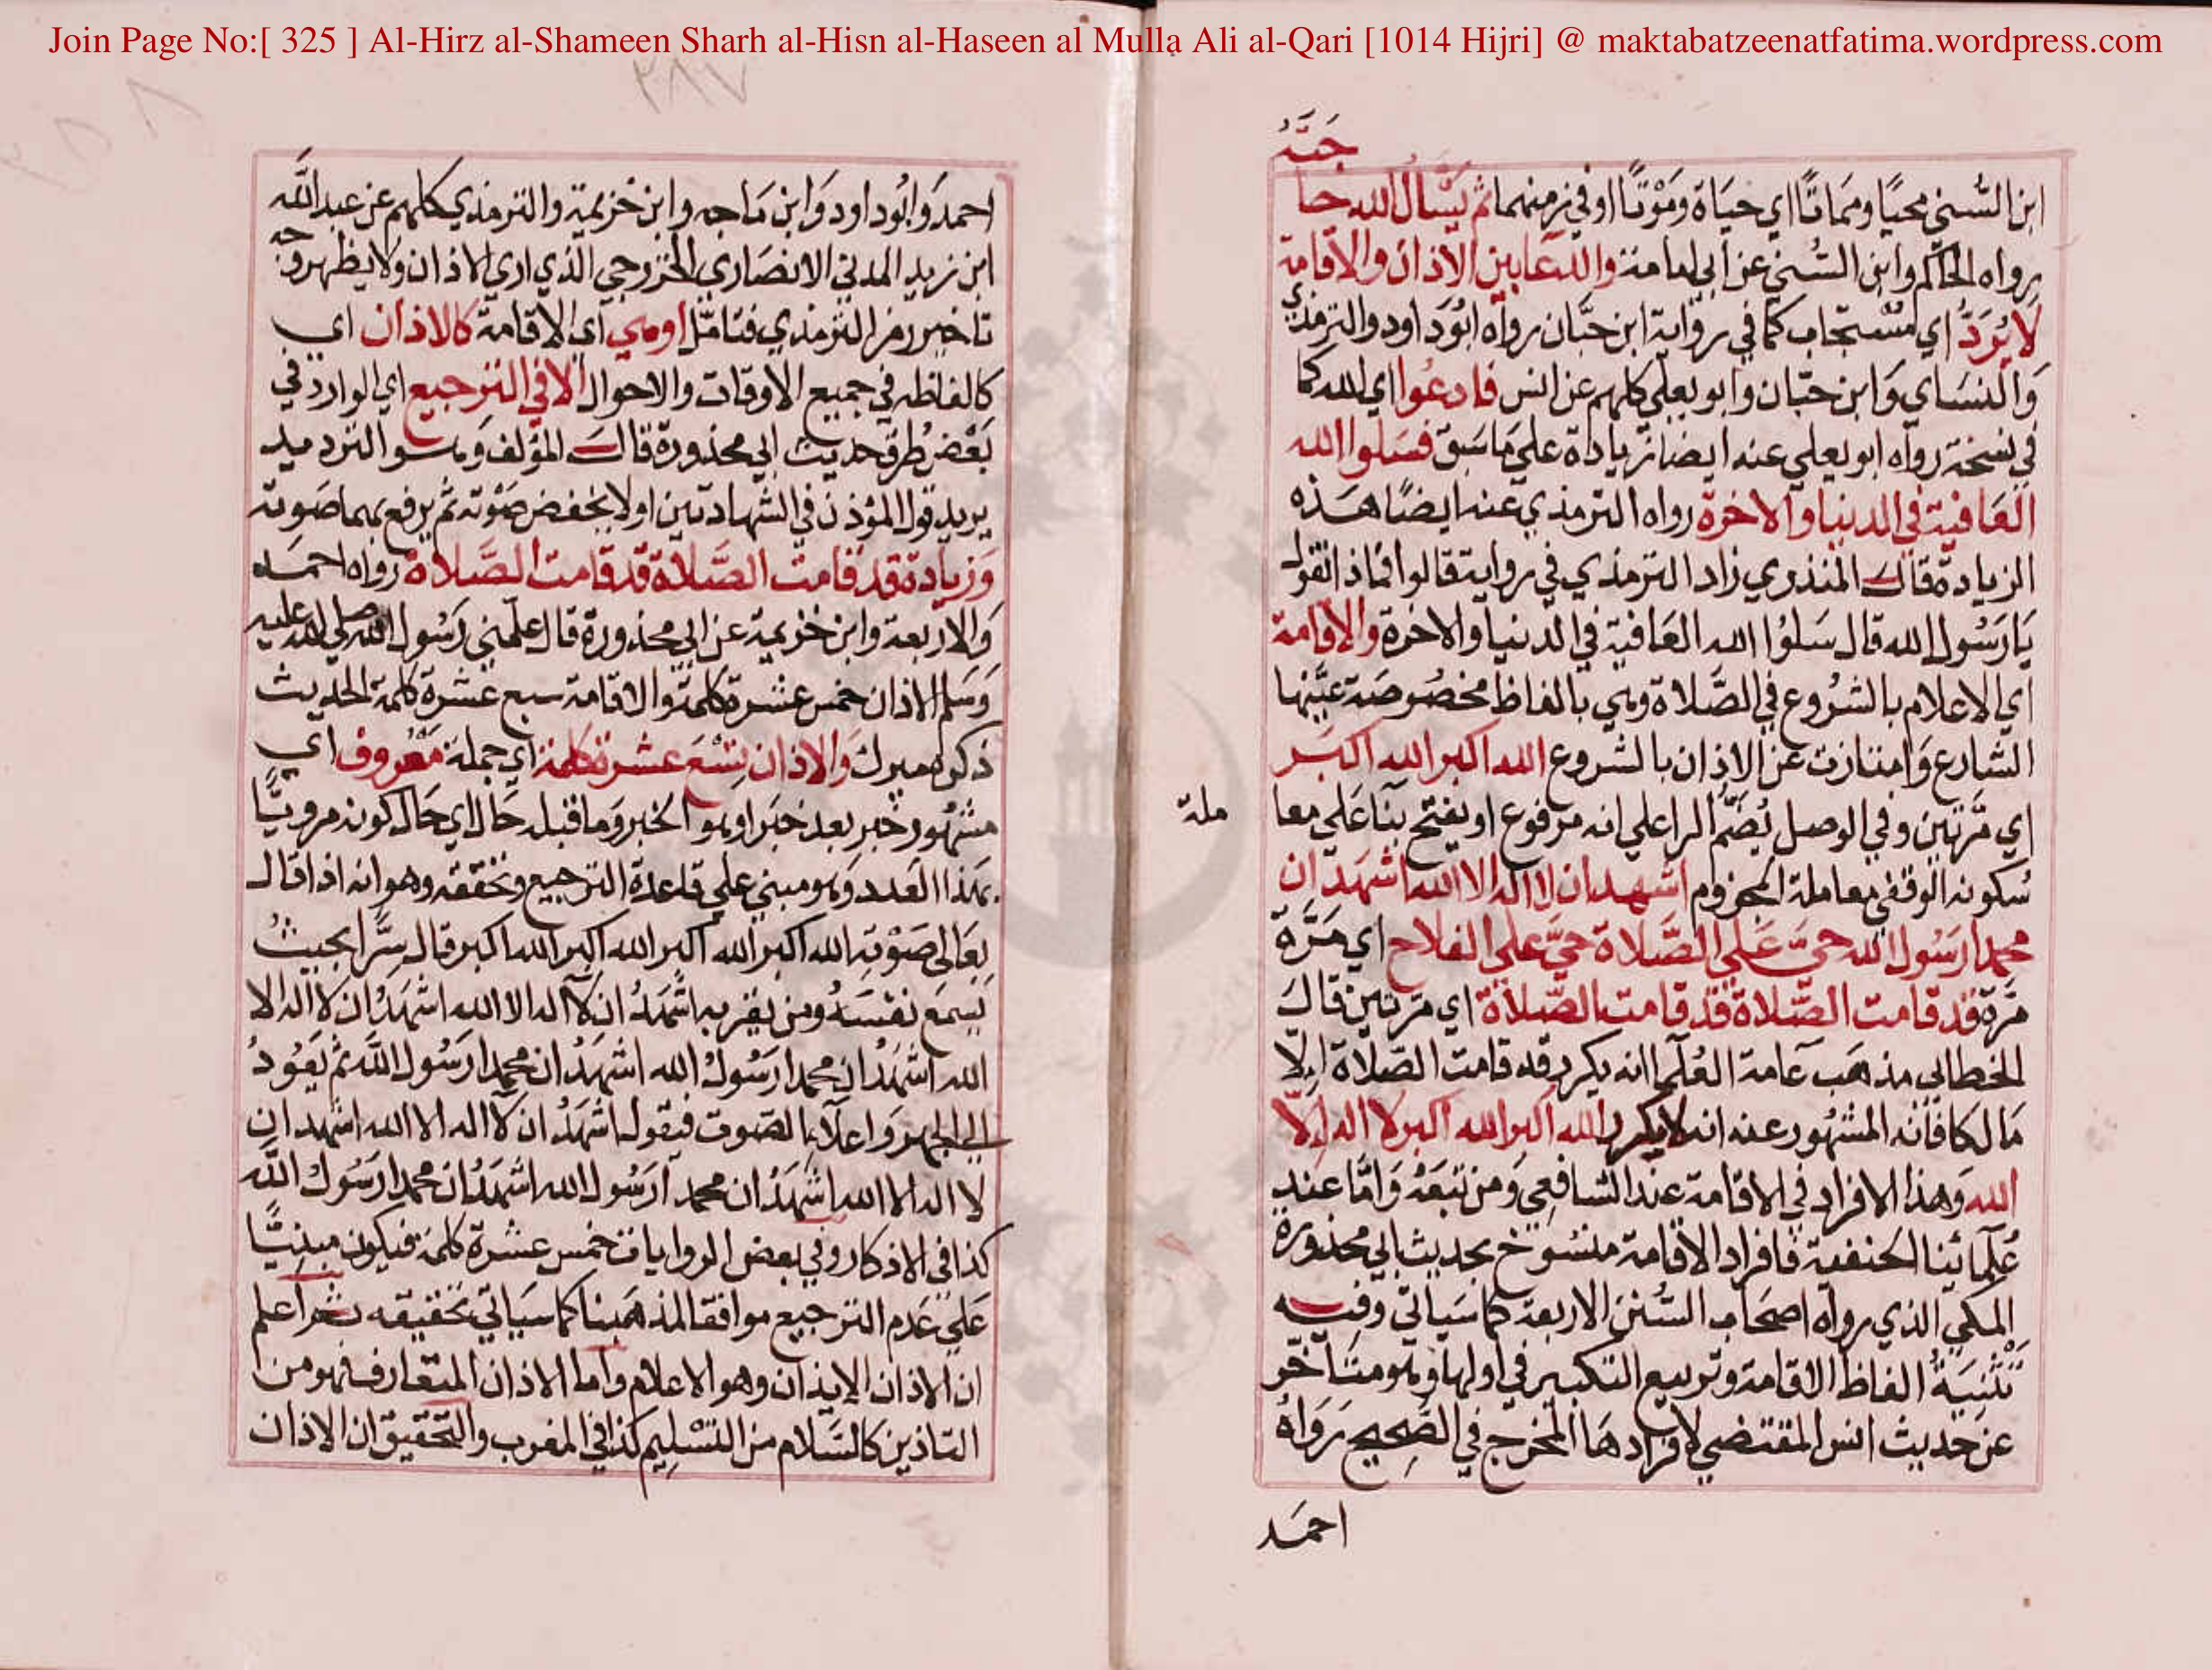 Join Page No:[ 325 ] Al-Hirz al-Shameen Sharh al-Hisn al-Haseen al Mulla Ali al-Qari [1014 Hijri] @ maktabatzeenatfatima.wordpress.com
ابن السُّني محيًا ومَمَاتًا اي حيَاة ومَوْتًا او في زمنهما ثم يَسْأل الله حاجَتَهُ
رواه الحاكم وابن السُّني عن ابي امامة والدعا بين الأذان والاقامة
لا يُرَدُّ اي مُسْتجاب كما في رواية ابن حبَّان رواه ابُودَاود والترمذي
وَالنسَاي وَابن حبّان وابو يعلي كلهم عن انس فادعُوا اي الله كما
في نسخة رواه ابو يعلي عنه ايضا زيادة علي مَا سَبق فسَلوا الله
العَافية في الدنيا والاخرة رواه الترمذي عنه ايضًا هَذه
الزيادة قالَ المنذري زاد الترمذي في رواية قالوا فماذا نقول
يَا رَسُول الله قال سَلوُا الله العَافية في الدنيا والاخرة والاقامة
اي الاعلام بالشرُوع في الصَّلاة وهي بالفاظ مخصُوصَة عيَّنها
الشارع وَامتازت عن الاذان بالشروع الله اكبر الله اكبَر
اي مَّرتين وفي الوصل يُضَمُّ الرا علي انه مرفوع او يفتح بنَا عَلي معاملة
سُكونه الوقفي معاملة المجزوم اشهد ان لا اله الا الله اشهَد ان
محمدا رَسُول الله حيَّ عَلي الصَّلاة حيَّ علي الفلاح اي مَرَّة
مَرّة قد قامت الصَّلاة قد قامت الصَّلاة اي مَرتين قالَ
الخطابي مذهَب عامة العُلَما انه يكرر قد قامت الصّلاة اِلّا
مَالكا فانه المشهُور عنه انه لا يكرر الله اكبر الله اكبر لا اله اِلا
الله وَهذا الافراد في الاقامة عند الشافعِي وَمن تبعَهُ وَامَّا عند
عُلمائنا الحنفية فافراد الاقامة منسُوخ بحديث ابي محذورة
المكي الذي رواه اصحَاب السُّنن الاربعة كما سَياتي وفيه
تثنيَةُ الفاظ الاقامة وتربيع التكبير في اولها وهو متَأخر
عن حَديث انس المقتضي لافرادهَا المخرج في الصَّحِيح رَوَاهُ
احمَد
احمدَ وَابُوداود وَابن مَاجه وابن خزيمة والترمذي كلهم عن عبد الله
ابن زيد المدني الانصَاري الخزرجي الذي اري الاذان ولا يظهر وجه
تاخير رمز الترمذي فتامّل اوهي اي الاقامة كالاذان اي
كالفاظه في جميع الاوقات والاحوال الا في الترجيع اي الوارد في
بَعْض طُرق حديث ابي محذورة قالَ المؤلف وَهو الترديد
يريد قول المؤذن في الشهادتين اولا بخفض صَوْته ثم يرفع بهما صَوته
وَزيادة قد قامت الصَّلاة قد قامت الصَّلاة رواه احمَد
وَالاربعة وابن خزيمة عن ابي محذورة قال علّمني رَسُول الله صلي الله عليه
وَسَلم الاذان خمس عشرة كلمة والاقامة سبع عشرة كلمة الحديث
ذكره ميرك وَالاذان تِسْعَ عشرة كلمة اي جملة مَعْرُوف اي
مشهُور خبر بعد خبَر او هو الخبر وَما قبله حَال اي حَال كونه مرويًّا
بهَذا العَدد وَهو مبني علي قاعدة الترجيع وتحققه وهو انه اذا قال
بعَالي صَوْتِه الله اكبر الله اكبر الله اكبر الله اكبر قال سِرًّا بحيث
يُسِمَع نفسَهُ ومن يقربه اشْهَدُ ان لا اله الا الله اشهَدُ ان لا اله الا
الله اشهَدُ ان محمدا رَسُولُ الله اشهَدُ ان محمدا رَسُول الله ثم يَعُودُ
الي الجهر وَاعلاءِ الصَوت فيقول اشهَدُ ان لا اله الا الله اشهد ان
لا اله الا الله اشهَدُ ان محمدا رَسُول الله اشهَدُ ان محمدا رَسُولُ الله
كذا في الاذكار وفي بعض الروايات خمس عشرة كلمة فيكون مبنيًّا
عَلي عَدم الترجيع موافقا لمذهَبنا كما سيَاتي تحقيقه ثم اعلم
ان الاذان الايذان وهو الاعلام واما الاذان المتعَارف فهو من
التاذين كالسَّلام من التسْلِيم كذا في المغرب والتحقيق ان الاذان